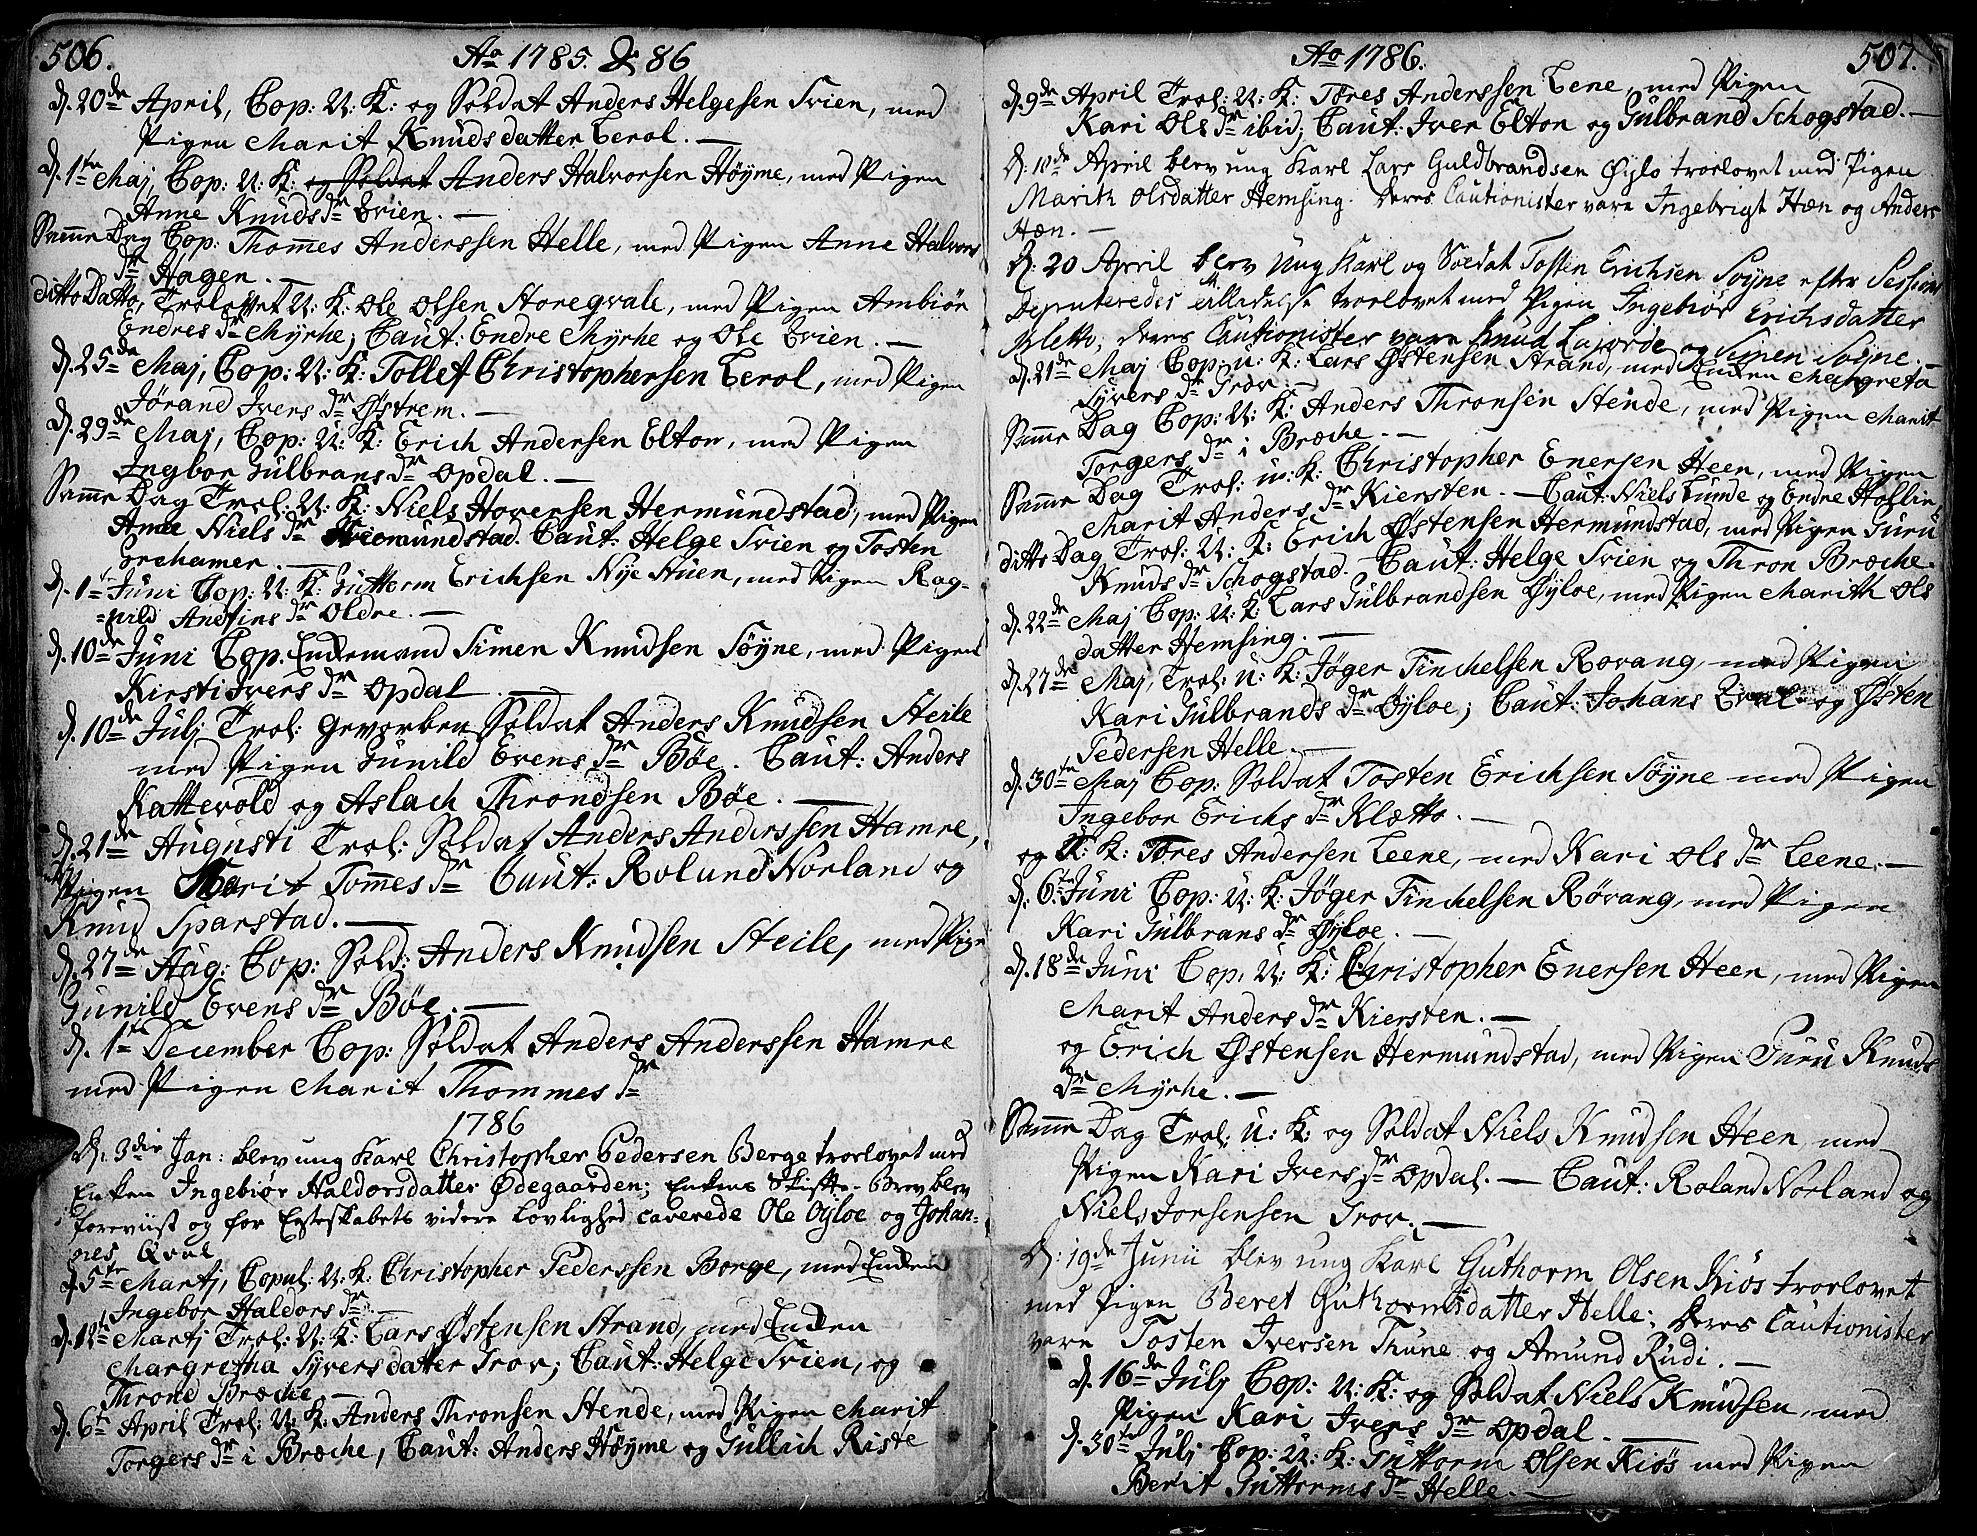 506.
Ao 1785. & 86
d. 20de April, Cop: U: K: og Soldat Anders Helgesen Trien, med
Pigen Marit Knudsdatter Lerol. —
d. 1te Maj, Cop: U: K: og Soldat Anders Halvorsen Høyme, med Pigen
Anne Knuds dr Trien. —
Samme Dag Cop: Thommes Anderssen Helle, med Pigen Anne Halvors
dr Hagen. —
ditto Datto, Trolovet U: K: Ole Olsen Storeqvale, med Pigen Ambiør
Endres dr Myrhe; Caut: Endre Myrhe og Ole Trien. —
d. 25de Maj, Cop: U: K: Tollef Christophersen Lerol, med Pigen
Jørand Ivers dr Østrem. —
d. 29de Maj, Cop: U: K: Erich Andersen Elton, med Pigen
Ingbor Gulbrans dr Opdal. —
Samme Dag Trol: U: K: Niels Hoversen Hermundstad, med Pigen
Anne Niels dr Hermundstad. Caut: Helge Trien og Tosten
Grehamer. —
d. 1te Juni Cop: U: K: Guttorm Erichsen Nye Stuen, med Pigen Rag-
=nild Andfins dr Oldre. —
d. 10de Juni Cop. Enkemand Simen Knudsen Søyne, med Pigen
Kirsti Ivers dr Opdal —
d. 10de Julj Trol: Gevorben Soldat Anders Knudsen Steile
med Pigen Gunild Evens dr Bøe. Caut: Anders
Kattevold og Aslach Throndsen Bøe. —
d. 21de Augusti Trol: Soldat Anders Anderssen Hamre,
Pigen Marit Tommes dr Caut: Roland Norland og
Knud Sparstad. —
d. 27de Aug: Cop: Sold: Anders Knudsen Steile, med Pige
Gunild Evens dr Bøe. —
d. 1te December Cop: Soldat Anders Anderssen Hamre
med Pigen Marit Thommes dr
1786
D: 3die Jan: blev ung Karl Christopher Pedersen Berge trorlovet med
Enken Ingebiør Haldorsdatter Ødegaarden; Enkens Skifte-Brev blev
foreviist og for Egteskabets videre Lovlighed caverede Ole Øyloe og Johan-
nes Qval
d. 5te Martj, Copul: U: K: Christopher Pederssen Borge, med Enken
Ingebor Haldors dr. —
d. 12te Martj Trol: U: K: Lars Østensen Strand, med Enken
Margretha Syversdatter Trov; Caut: Helge Trien, og
Thrond Bræche. —
d. 6te April Trol: U: K: Anders Thronsen Stende, med Pigen Marit
Torgers dr i Bræche, Caut: Anders Høyme og Gullich Riste
Ao 1786.
507.
d. 9de April Trol: U: K: Tøres Anderssen Lene, med Pigen
Kari Ols dr ibid; Caut: Iver Elton og Gulbrand Schogstad. —
D: 18de April blev ung Karl Lars Guldbrandsen Øylo trorlovet med Pigen
Marith Olsdatter Hemsing. Deres Cautionister vare Ingebrigt Hæn og Anders
Hæn. —
D: 20 April blev Ung Karl og Soldat Tosten Erichsen Søyne efter Sessions
Deputeredes tilladelse trorlovet med Pigen Ingebiør Erichsdatter
Kletto, deres Cautionister vare Knud Lajorde og Simen Søyne. —
d. 21de Maj Cop: U: K: Lars Østensen Strand, med Enken Margreta
Syvers dr Trov. —
Samme Dag Cop: U: K: Anders Thronsen Stende, med Pigen Marit
Torgers dr i Bræche. —
Samme Dag Trol: U: K: Christopher Enersen Heen, med Pigen
Marit Anders dr Kiersten. — Caut: Niels Lunde og Endre Hollin
ditto Dag Trol: U: K: Erich Østensen Hermundstad, med Pigen Guru
Knuds dr Schogstad. Caut: Helge Trien og Thron Bræche.
d. 22de Maj Cop: U: K: Lars Gulbrandsen Øyloe, med Pigen Marith Ols
datter Hemsing. —
d. 27de Maj, Trol: U: K: Jøger Finchelsen Rovang, med Pigen
Kari Gulbrands dr Øyloe; Caut: Johans Qval og Østen
Pedersen Helle. —
d. 30te Maj Cop: Soldat Tosten Erichsen Søyne med Pigen
Ingebor Erichs dr Klætto. —
og U: K: Tøres Andersen Leene, med Kari Ols dr Leene. —
d: 6te Juni Cop: U: K: Jøger Finchelsen Røvang, med Pigen
Kari Gulbrans dr Øyloe. —
d. 18de Juni Cop: U: K: Christopher Enersen Heen, med Pigen
Marit Anders dr Kiersten. —
og Erich Østensen Hermundstad, med Pigen Guru Knuds
dr Myrhe. —
Samme Dag Trol: U: K: og Soldat Niels Knudsen Heen, med
Pigen Kari Ivers dr Opdal. — Caut: Roland Norland og
Niels Jorsensen Trov. —
D: 19de Junii blev ung Karl Guthorm Olsen Kiøs trorlovet
med Pigen Beret Guthormsdatter Helle; deres Cautionister
vare Tosten Iversen Thune og Amund Rudi. —
d. 16de Julj Cop: U: K: og Soldat Niels Knudsen, med
Pigen Kari Ivers dr Opdal. —
d. 30te Julj Cop: U: K: Guttorm Olsen Kiøs med Pigen
Berit Guttorms dr Helle. —